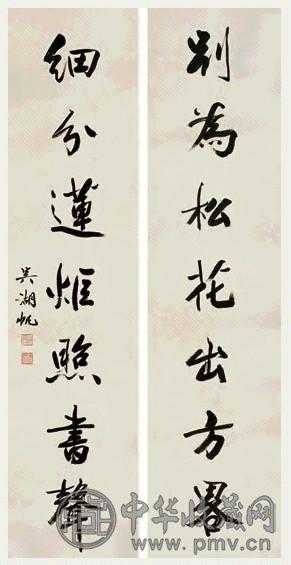 別為松花出方畧
細分蓮炬照書聲
吳湖帆
中华收藏网
www.pmv.cn